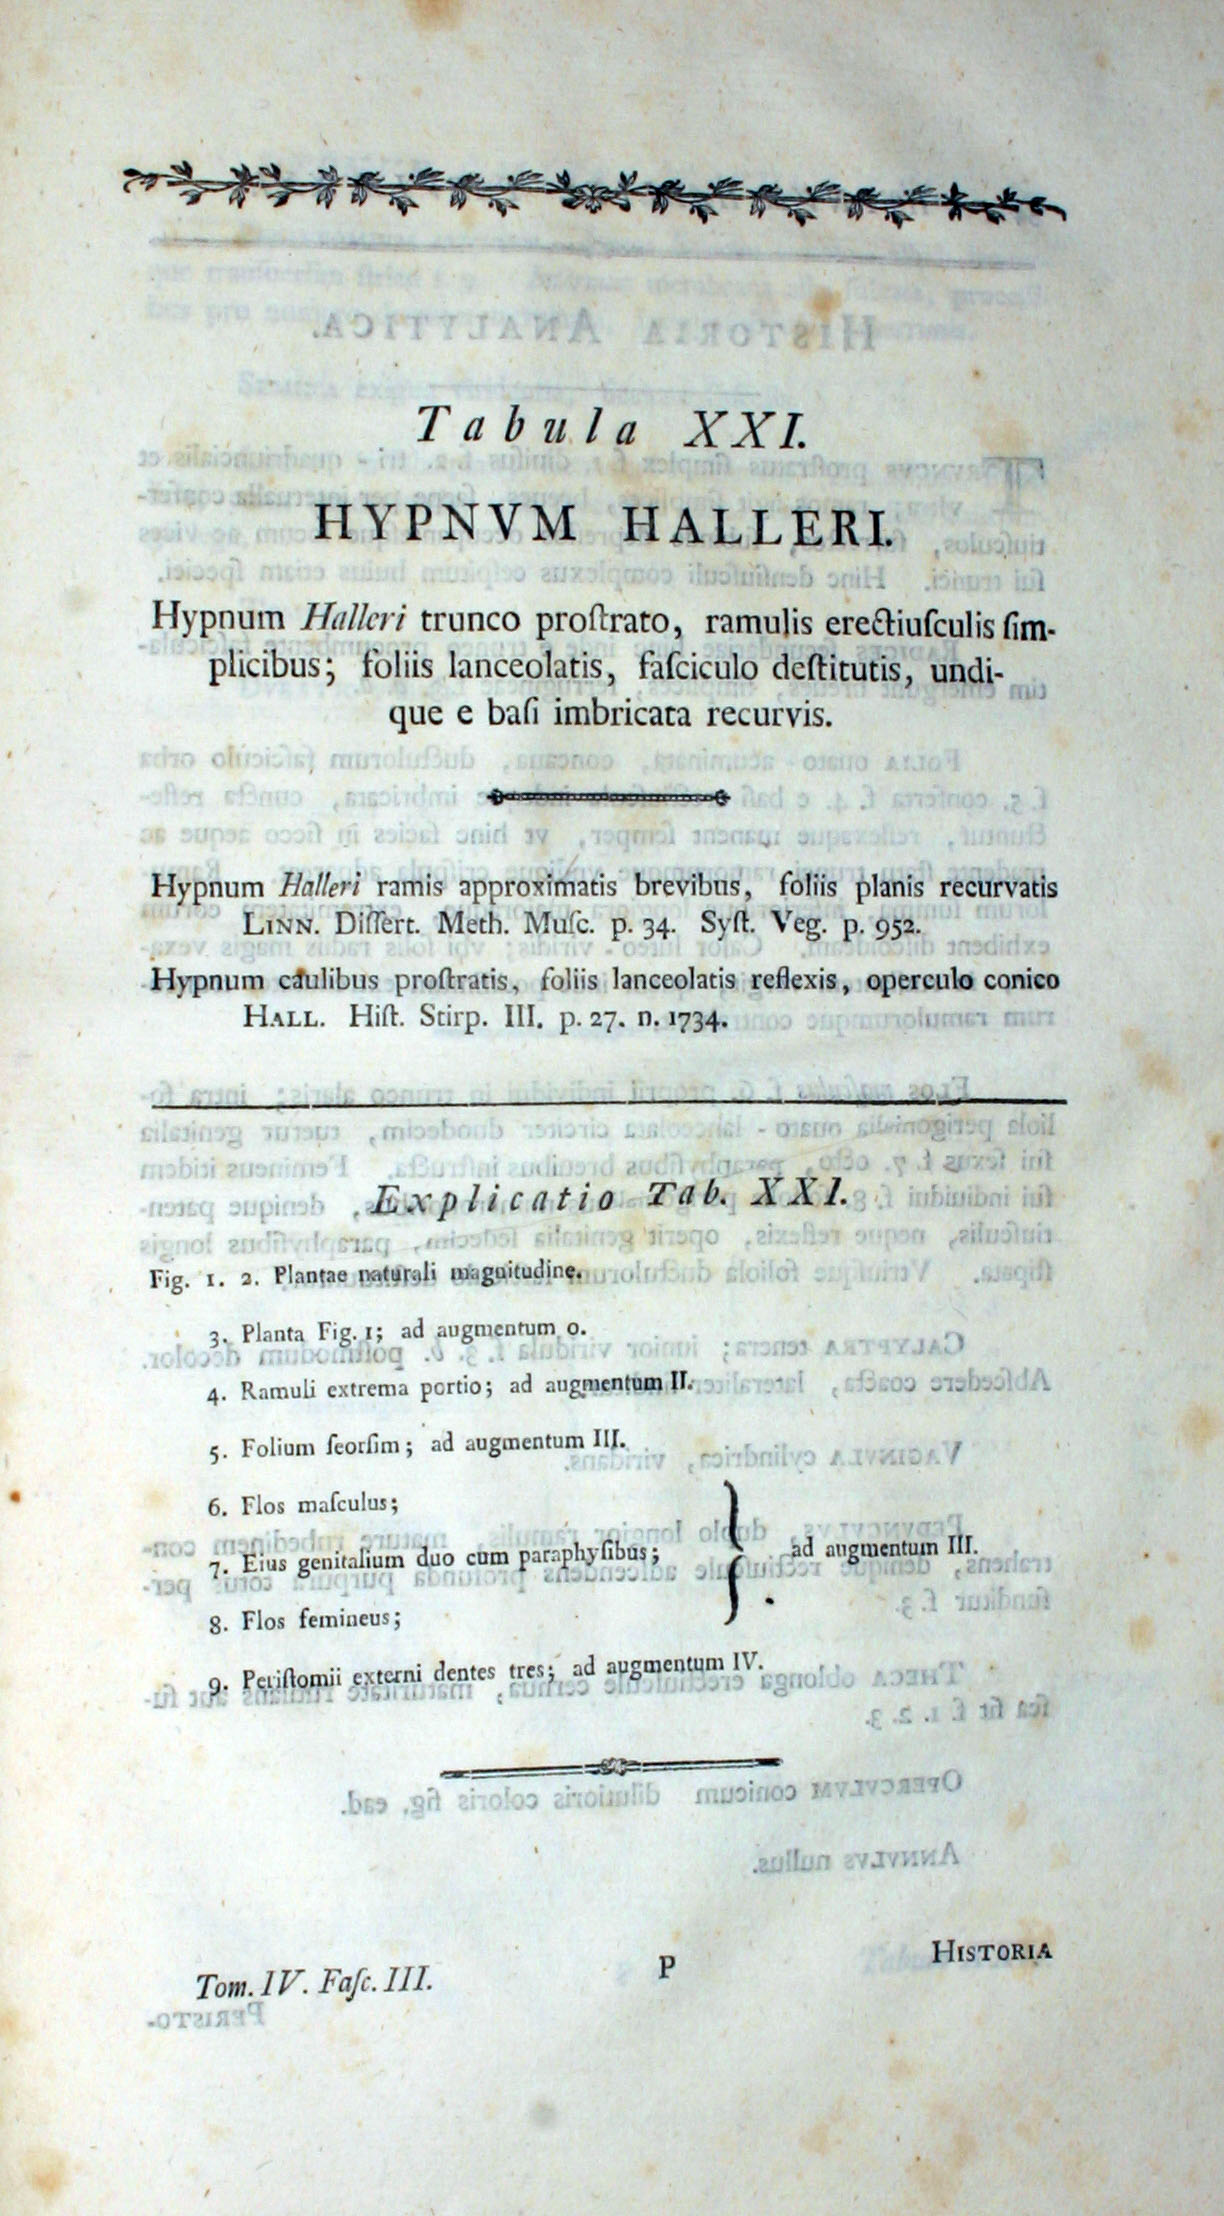 Tabula XXI.
HYPNVM HALLERI.
Hypnum Halleri trunco proſtrato, ramulis erectiuſculis ſim-
plicibus; foliis lanceolatis, faſciculo deſtitutis, undi-
que e baſi imbricata recurvis.
Hypnum Halleri ramis approximatis brevibus, foliis planis recurvatis
LINN. Diſſert. Meth. Muſc. p. 34. Syſt. Veg. p. 952.
Hypnum caulibus proſtratis, foliis lanceolatis reflexis, operculo conico
HALL. Hiſt. Stirp. III. p. 27. n. 1734.
Explicatio Tab. XXI.
Fig. 1. 2. Plantae naturali magnitudine.
3. Planta Fig. 1; ad augmentum 0.
4. Ramuli extrema portio; ad augmentum II.
5. Folium ſeorſim; ad augmentum III.
6. Flos maſculus;
7. Eius genitalium duo cum paraphyſibus; } ad augmentum III.
8. Flos femineus;
9. Periſtomii externi dentes tres; ad augmentum IV.
Tom. IV. Faſc. III. P HISTORIA